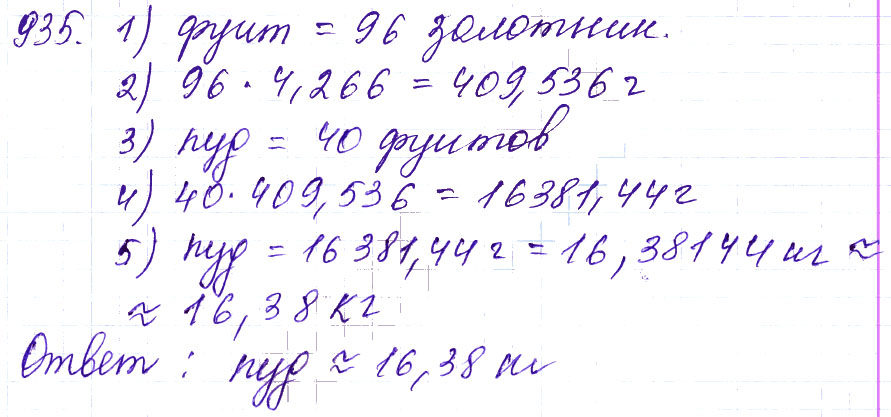 935. 1) фунт = 96 золотник.
2) 96 · 4,266 = 409,536 г
3) пуд = 40 фунтов
4) 40 · 409,536 = 16381,44 г
5) пуд = 16 381,44 г = 16,38144 кг ≈
≈ 16,38 кг
Ответ : пуд ≈ 16,38 кг